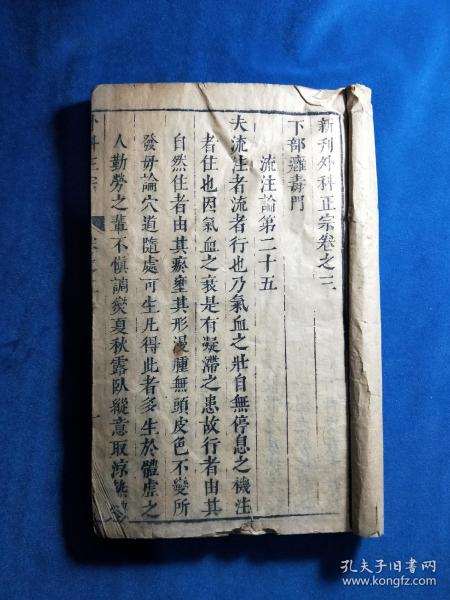 新刊外科正宗卷之三
下部癰毒門
流注論第二十五
夫流注者流者行也乃氣血之壯自無停息之機注
者住也因氣血之衰是有凝滯之患故行者由其
自然住者由其瘀壅其形漫腫無頭皮色不變所
發毋論穴道隨處可生凡得此者多生於體虛之
人勤勞之輩不慎調燮夏秋露臥縱意取涼
外科正宗
孔夫子旧书网
www.kongfz.com